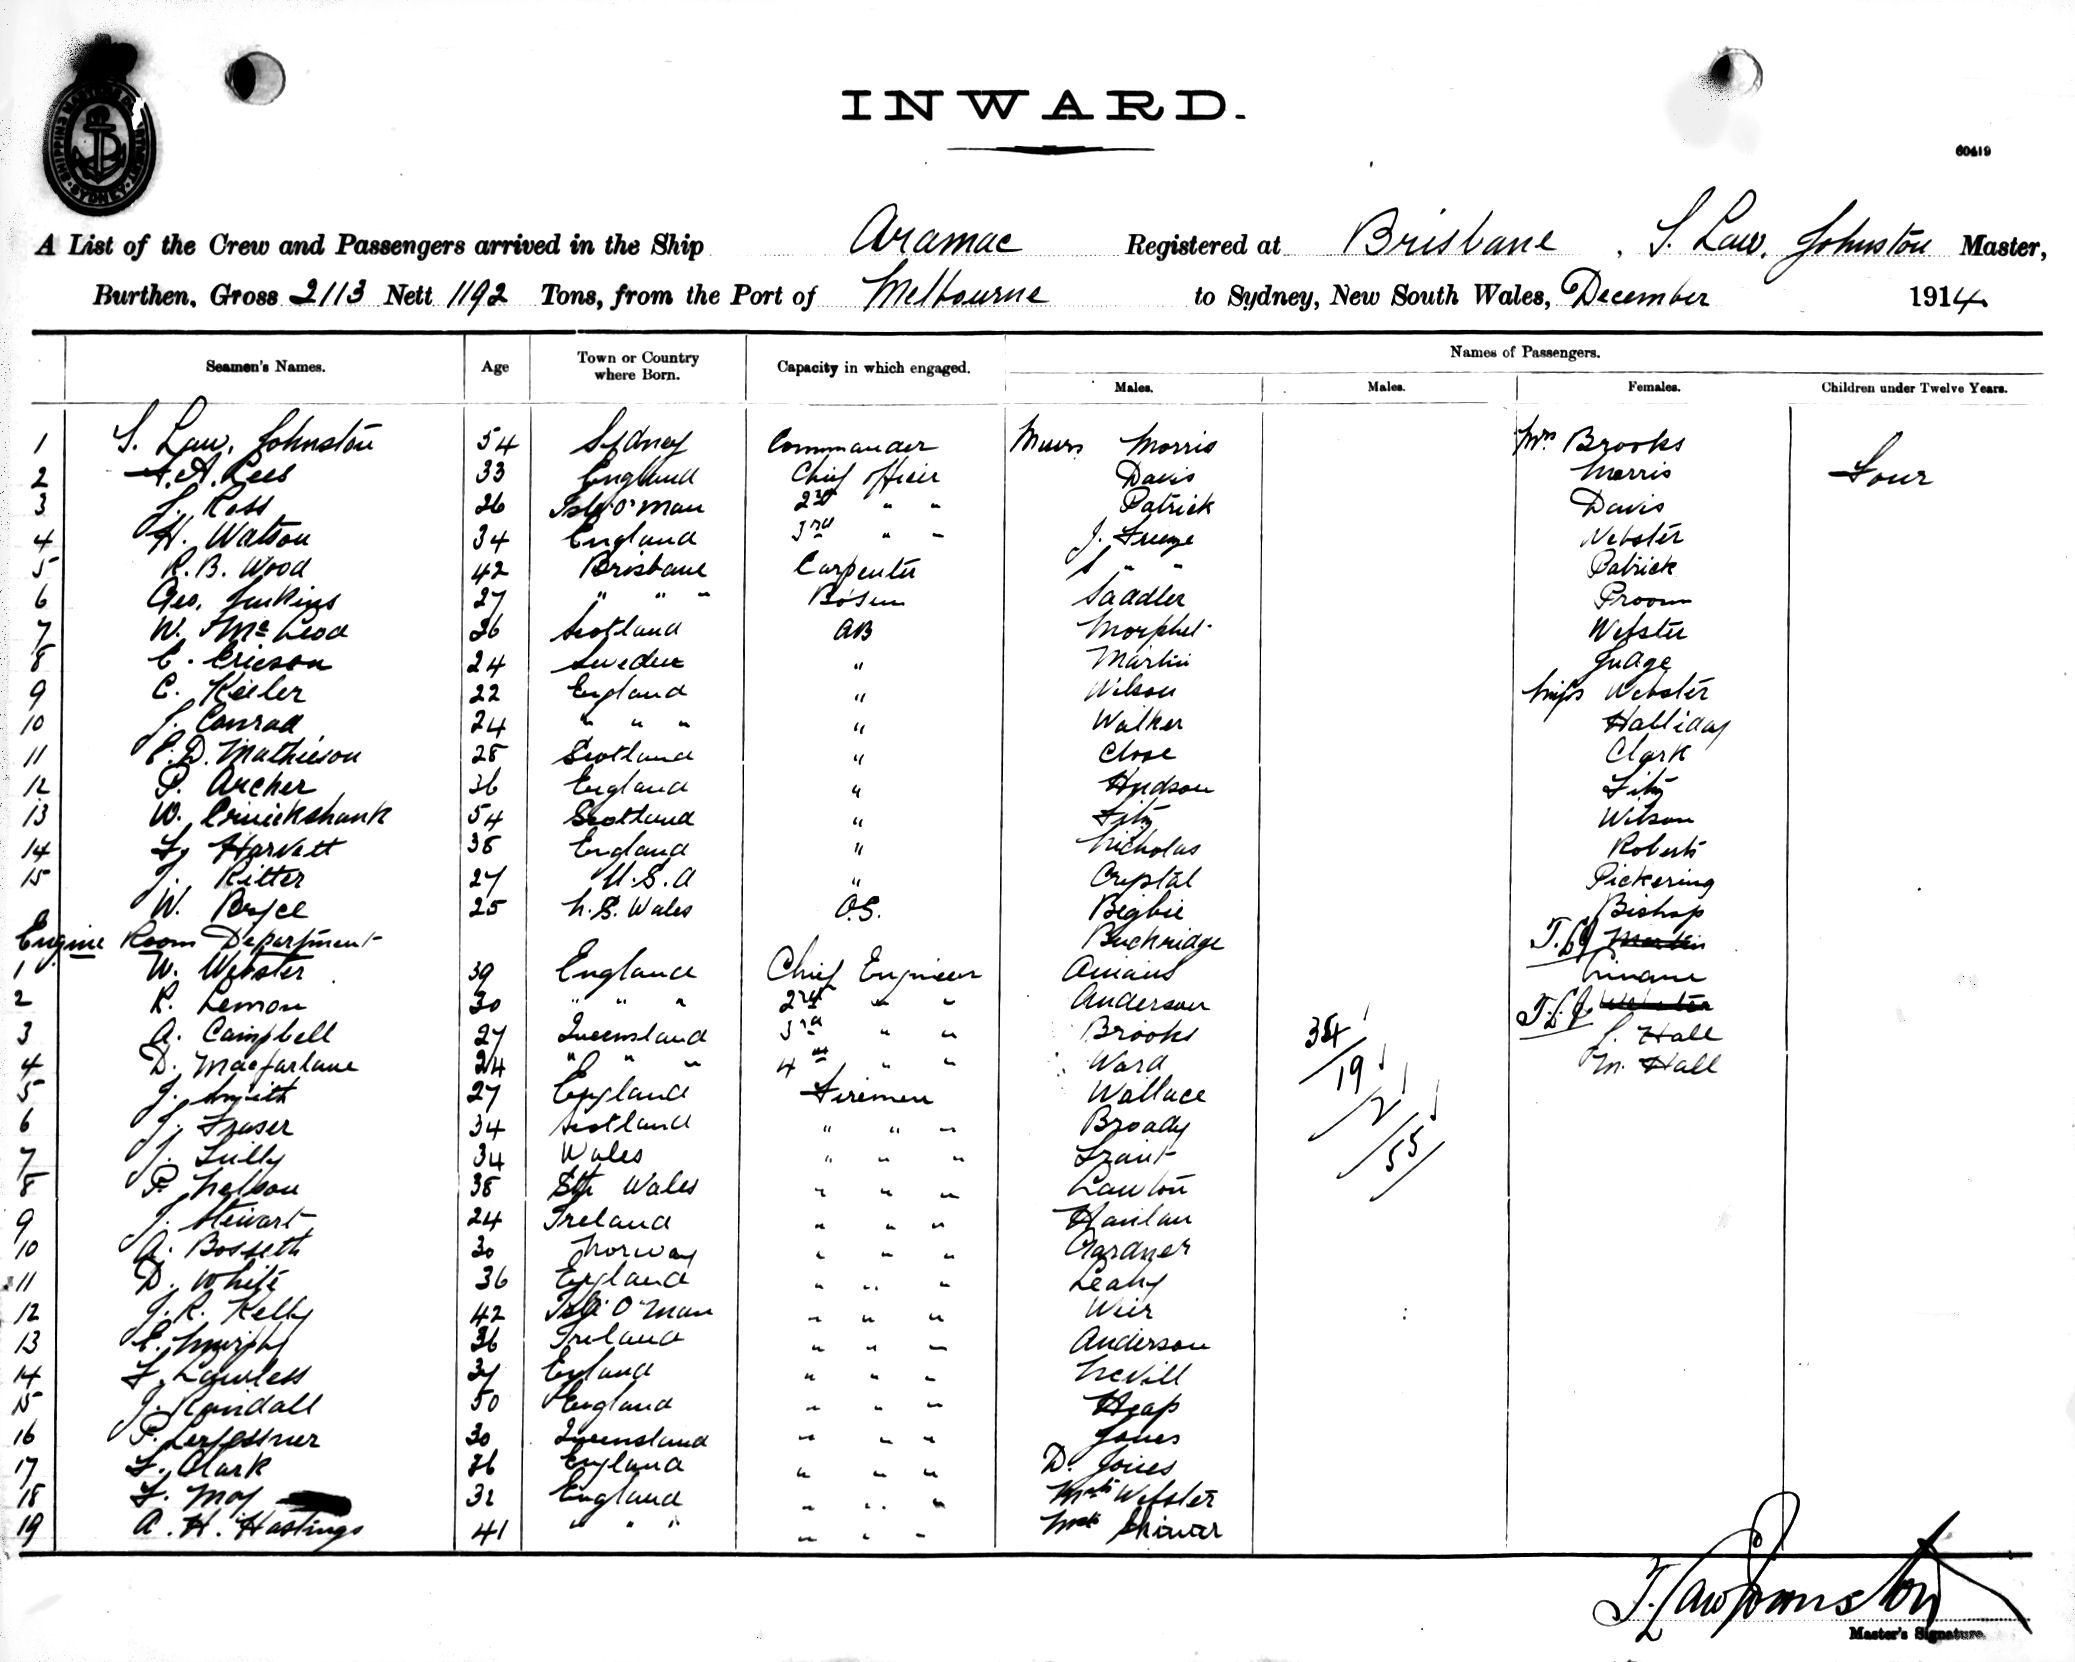 INWARD.
60419
A List of the Crew and Passengers arrived in the Ship Aramac Registered at Brisbane, Law. Johnston Master,
Burthen, Gross 2113 Nett 1192 Tons, from the Port of Melbourne to Sydney, New South Wales, December 1914
Seamen's Names. Age Town or Country where Born. Capacity in which engaged. Names of Passengers.
Males. Males. Females. Children under Twelve Years.
1 Law. Johnston 54 Sydney Commander Morris Mrs Brooks
2 A. Lees 33 England Chief Officer Davis Morris Four
3 Ross 26 Isle O' Man 2nd " " Patrick Davis
4 H. Watson 34 England 3rd " " J. Webster
5 R. B. Wood 42 Brisbane Carpenter " " Patrick
6 Geo. Jenkins 27 " " " Bosun Saddler Froom
7 W. McLeod 26 Scotland AB Morphet Webster
8 E. Ericson 24 Sweden " Martin Judge
9 C. Keeler 22 England " Wilson Miss Webster
10 J. Conrad 24 " " " " Walker Halliday
11 E. D. Mathieson 28 Scotland " Close Clark
12 P. Archer 36 England " Hudson Fitz
13 W. Cruickshank 54 Scotland " Fitz Wilson
14 Harvett 38 England " Nicholas Roberts
15 J. Ritter 27 U.S.A " Crystal Pickering
W. Boyce 25 N. S. Wales O.S. Begbie Bishop
Engine Room Department Buckridge T.LJ Martin
1 W. Webster 39 England Chief Engineer
2 R. Lemon 30 " " " 2nd " " Anderson T.LJ Webster
3 A. Campbell 27 Queensland 3rd " " Brooks 34 Hall
4 D. Macfarlane 24 " " " 4th " " Ward 19 M. Hall
5 J. Smith 27 England Firemen Wallace 2
6 J. Fraser 34 Scotland " " " Broady 55
7 J. 34 Wales " " " Grant
8 P. Nelson 38 Sth Wales " " " Lawton
9 J. Stewart 24 Ireland " " " Hanlan
10 A. Bosseth 30 Norway " " " Gardner
11 D. White 36 England " " " Leahy
12 J. R. Kelly 42 Isle O' Man " " " Weir
13 E. Murphy 36 Ireland " " " Anderson
14 Lawless England " " " Nevill
15 J. Randall 50 England " " " Heap
16 P. 30 Queensland " " " Jones
17 F. Clark 26 England " " " D. Jones
18 F. Moy 32 England " " " Webster
19 A. H. Hastings 41 " " " " " "
T. Law Johnston
Master's Signature.